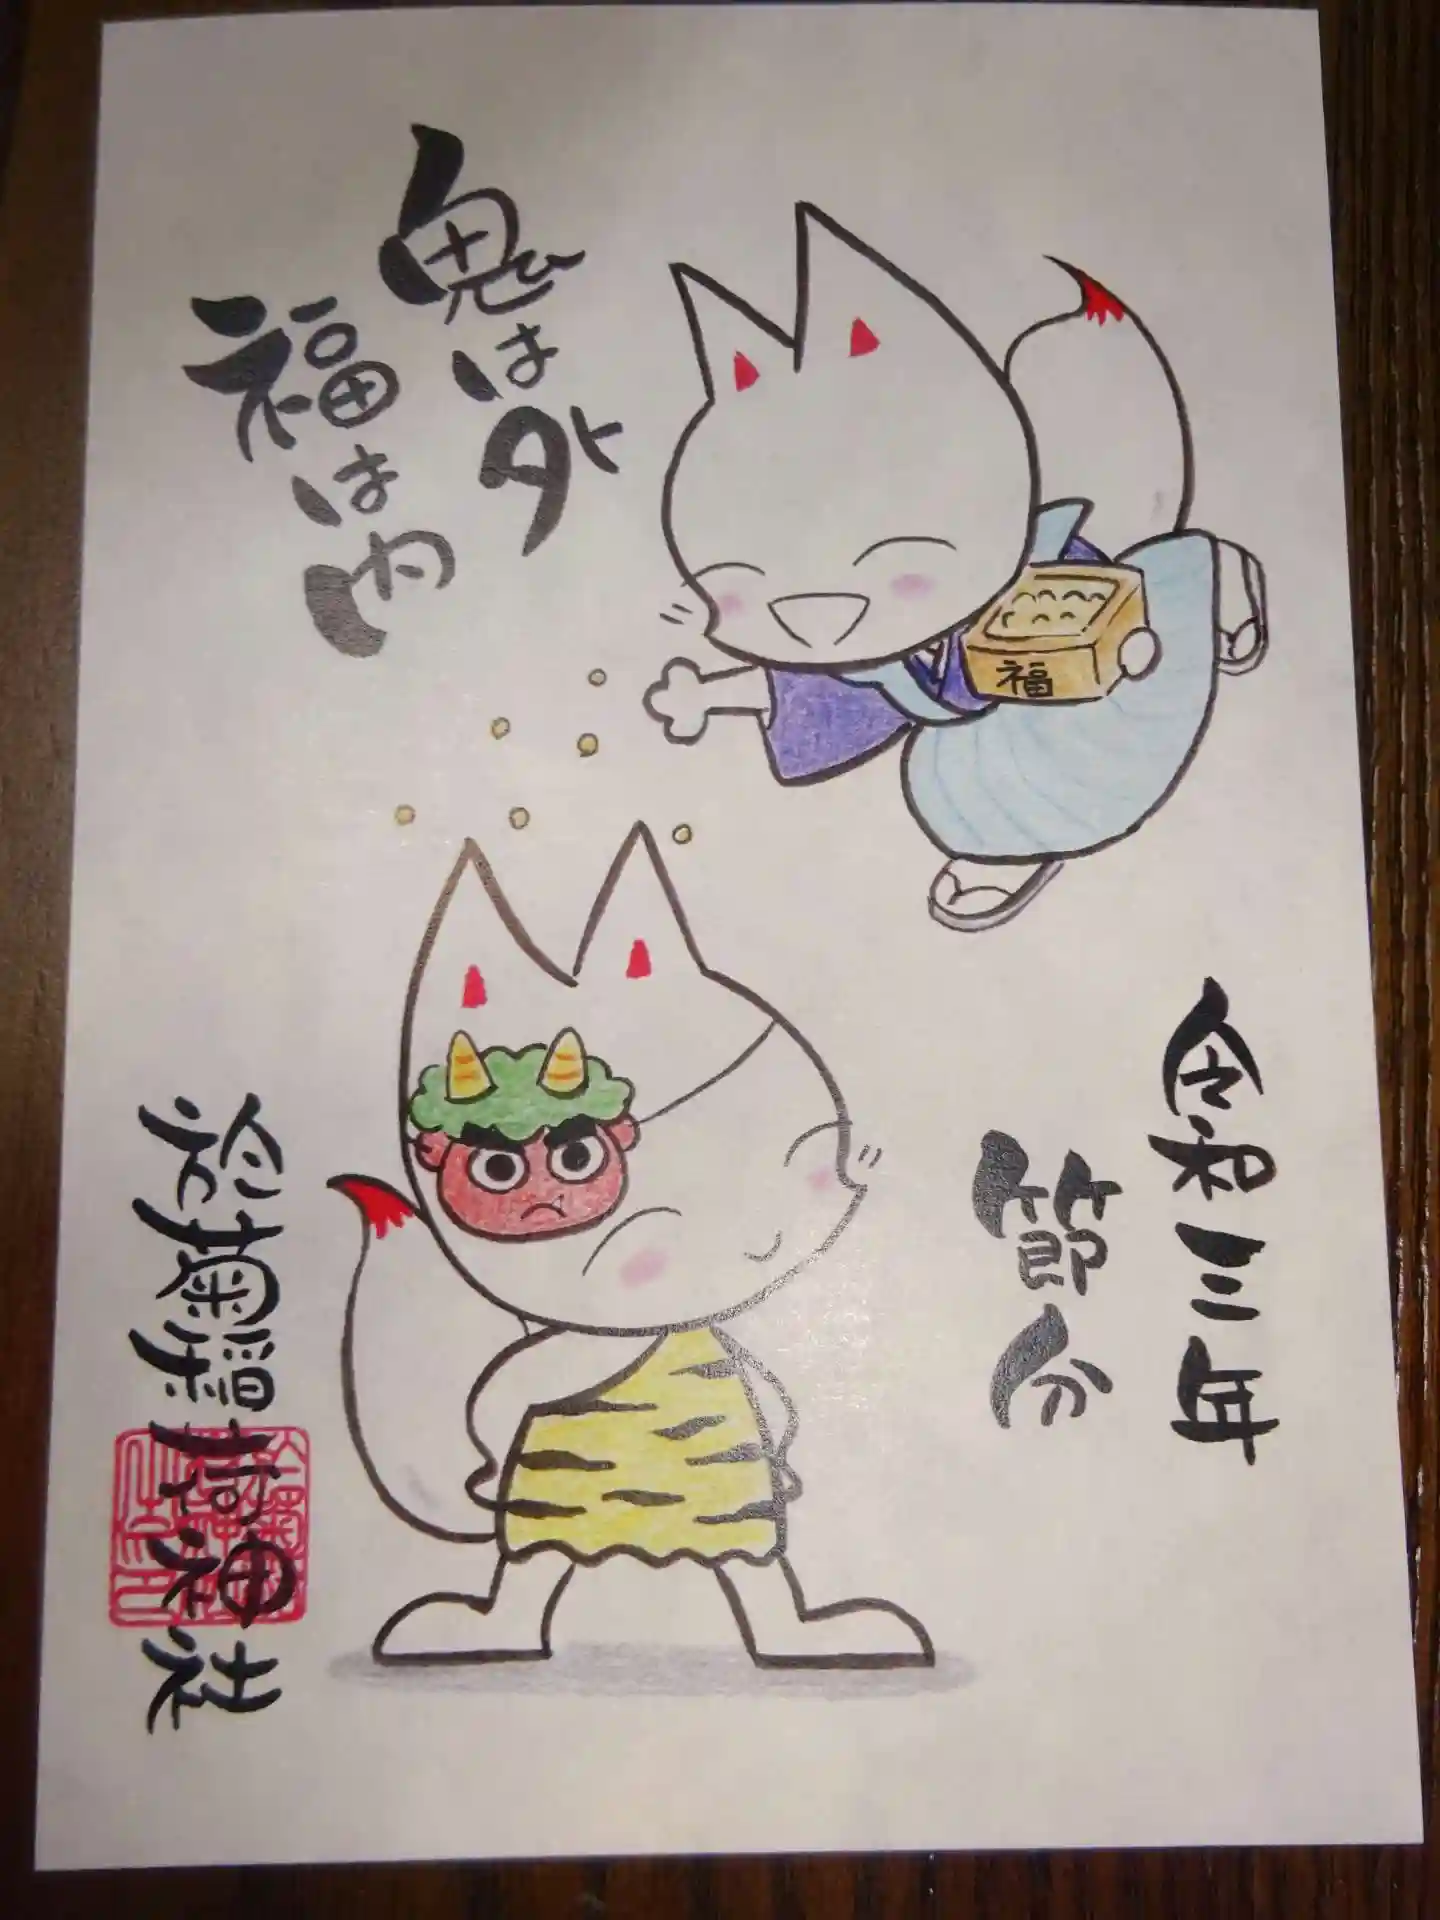 鬼は外
福は内
福
令和三年
節分
於菊稲荷神社